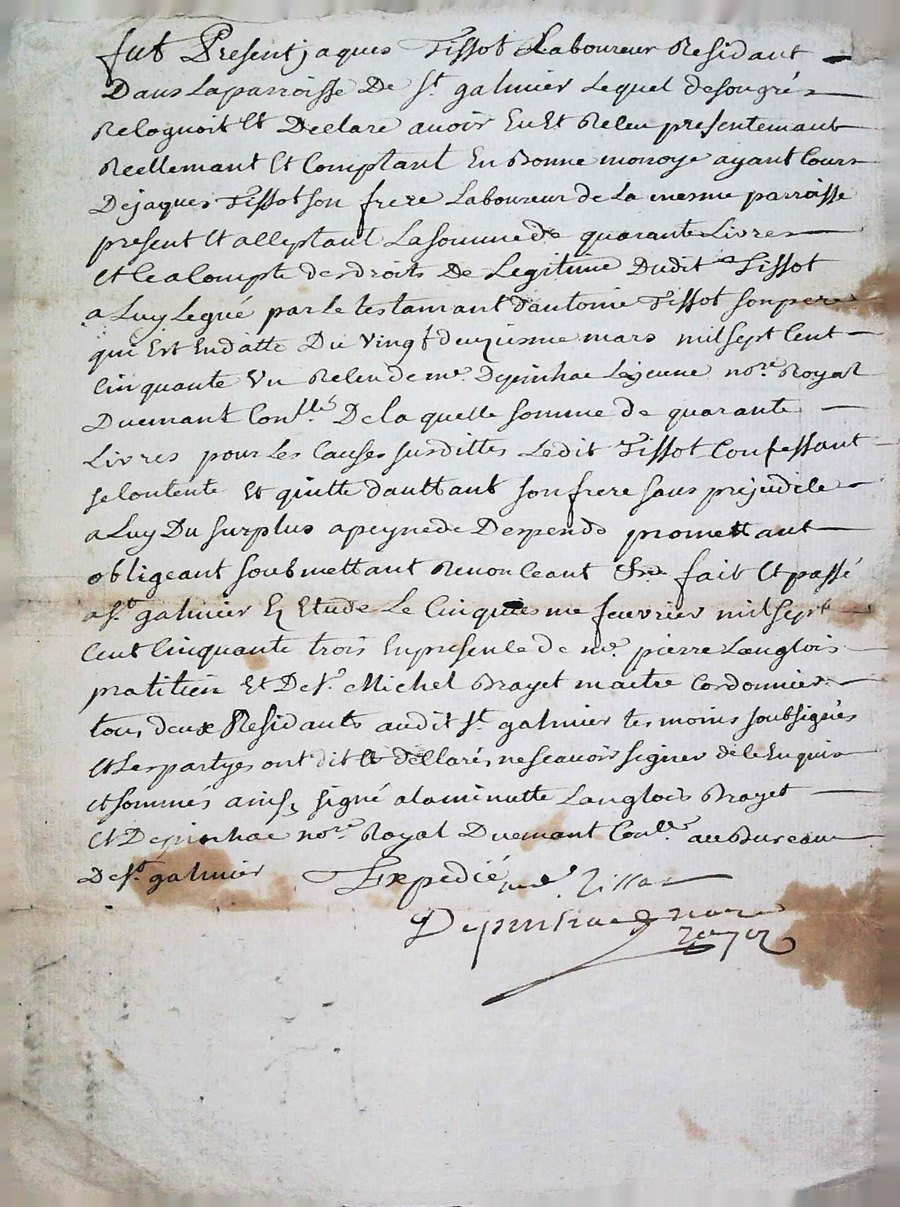 fut Present jaques Tissot Laboureur Residant
Dans La parroisse De St. galmier Lequel de son gré
Recognoit Et Declare avoir Eu Et Receu presentemant
Reellemant Et Comptant En Bonne monoye ayant Cours
De jaques Tissot son frere Laboureur de La mesme parroisse
present Et acceptant La somme de quarante Livres
Et ce a Compte des droits De Legitime Dudit Tissot
a Luy Legué par Le testamant d'antoine Tissot son pere
qui Est En datte Du vingt deuxiesme mars mil sept Cent
Cinquante Un Receu de me. Depinhac Lejeune nore. Royal
Duemant Conllé. De la quelle somme de quarante
Livres pour Les Causes susdittes Ledit Tissot Confessant
se Contente Et quitte d'auttant son frere sans prejudice
a Luy Du surplus a peyne de Despends promettant
obligeant soubmettant Renonceant fait Et passé
a St. galmier En Etude Le Cinquiesme feuvrier mil sept
Cent Cinquante trois En presence de me. pierre Langlois
pratitien Et De Sr. Michel Brayet maitre Cordonnier
tous deux Residants audit St. galmier tesmoins soubsignés
Et Les partyes ont dit Et declaré ne scavoir signer de ce Enquis
Et sommés ainsy signé a la minutte Langlois Brayet
Et Depinhac nore. Royal Duemant Conllé. au Bureau
De St. galmier Expedié Tissot
Depinhac